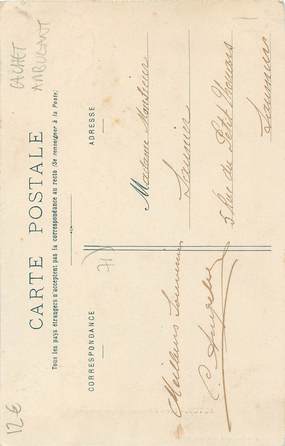 CACHET
AMBULANT
CARTE POSTALE
Tous les pays étrangers n'acceptent pas la correspondance au recto (Se renseigner à la Poste)
CORRESPONDANCE
ADRESSE
Meilleurs Souvenirs
C.
Madame
Saumur
5 Rue du Petit
Saumur
12€